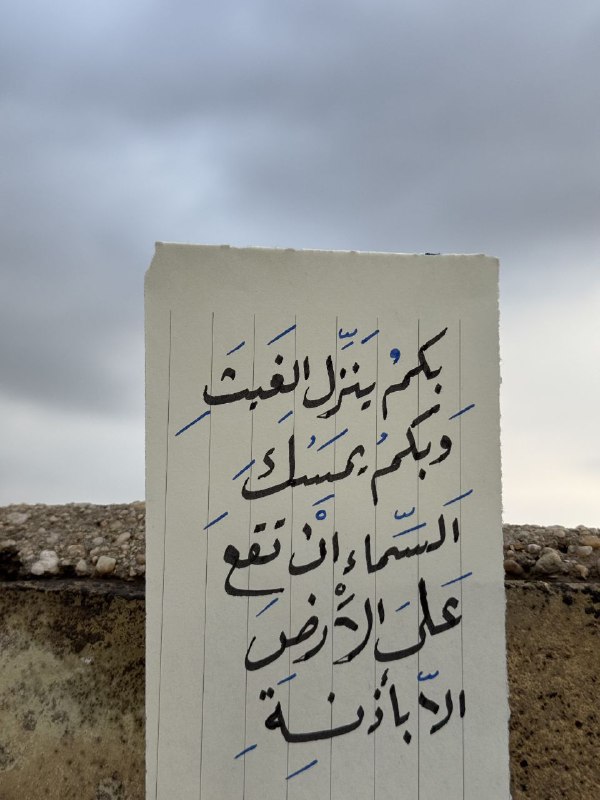 بكمُ يَنَزِّل الغَيثَ
وَبكمُ يمَسُكَ
اَلسَّماء انْ تقع
عَلىَ الأَرْضَ
الاّ بأذنهَ